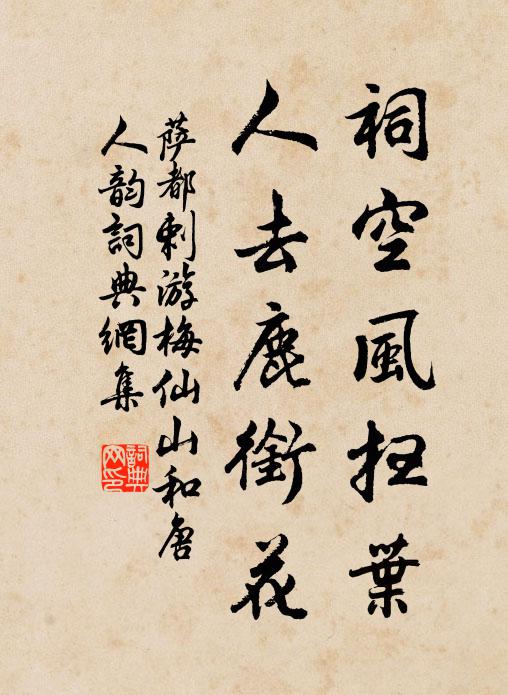 祠空風扫葉
人去鹿銜花
萨都剌游梅仙山和唐
人韵詞典網集
詞典網印